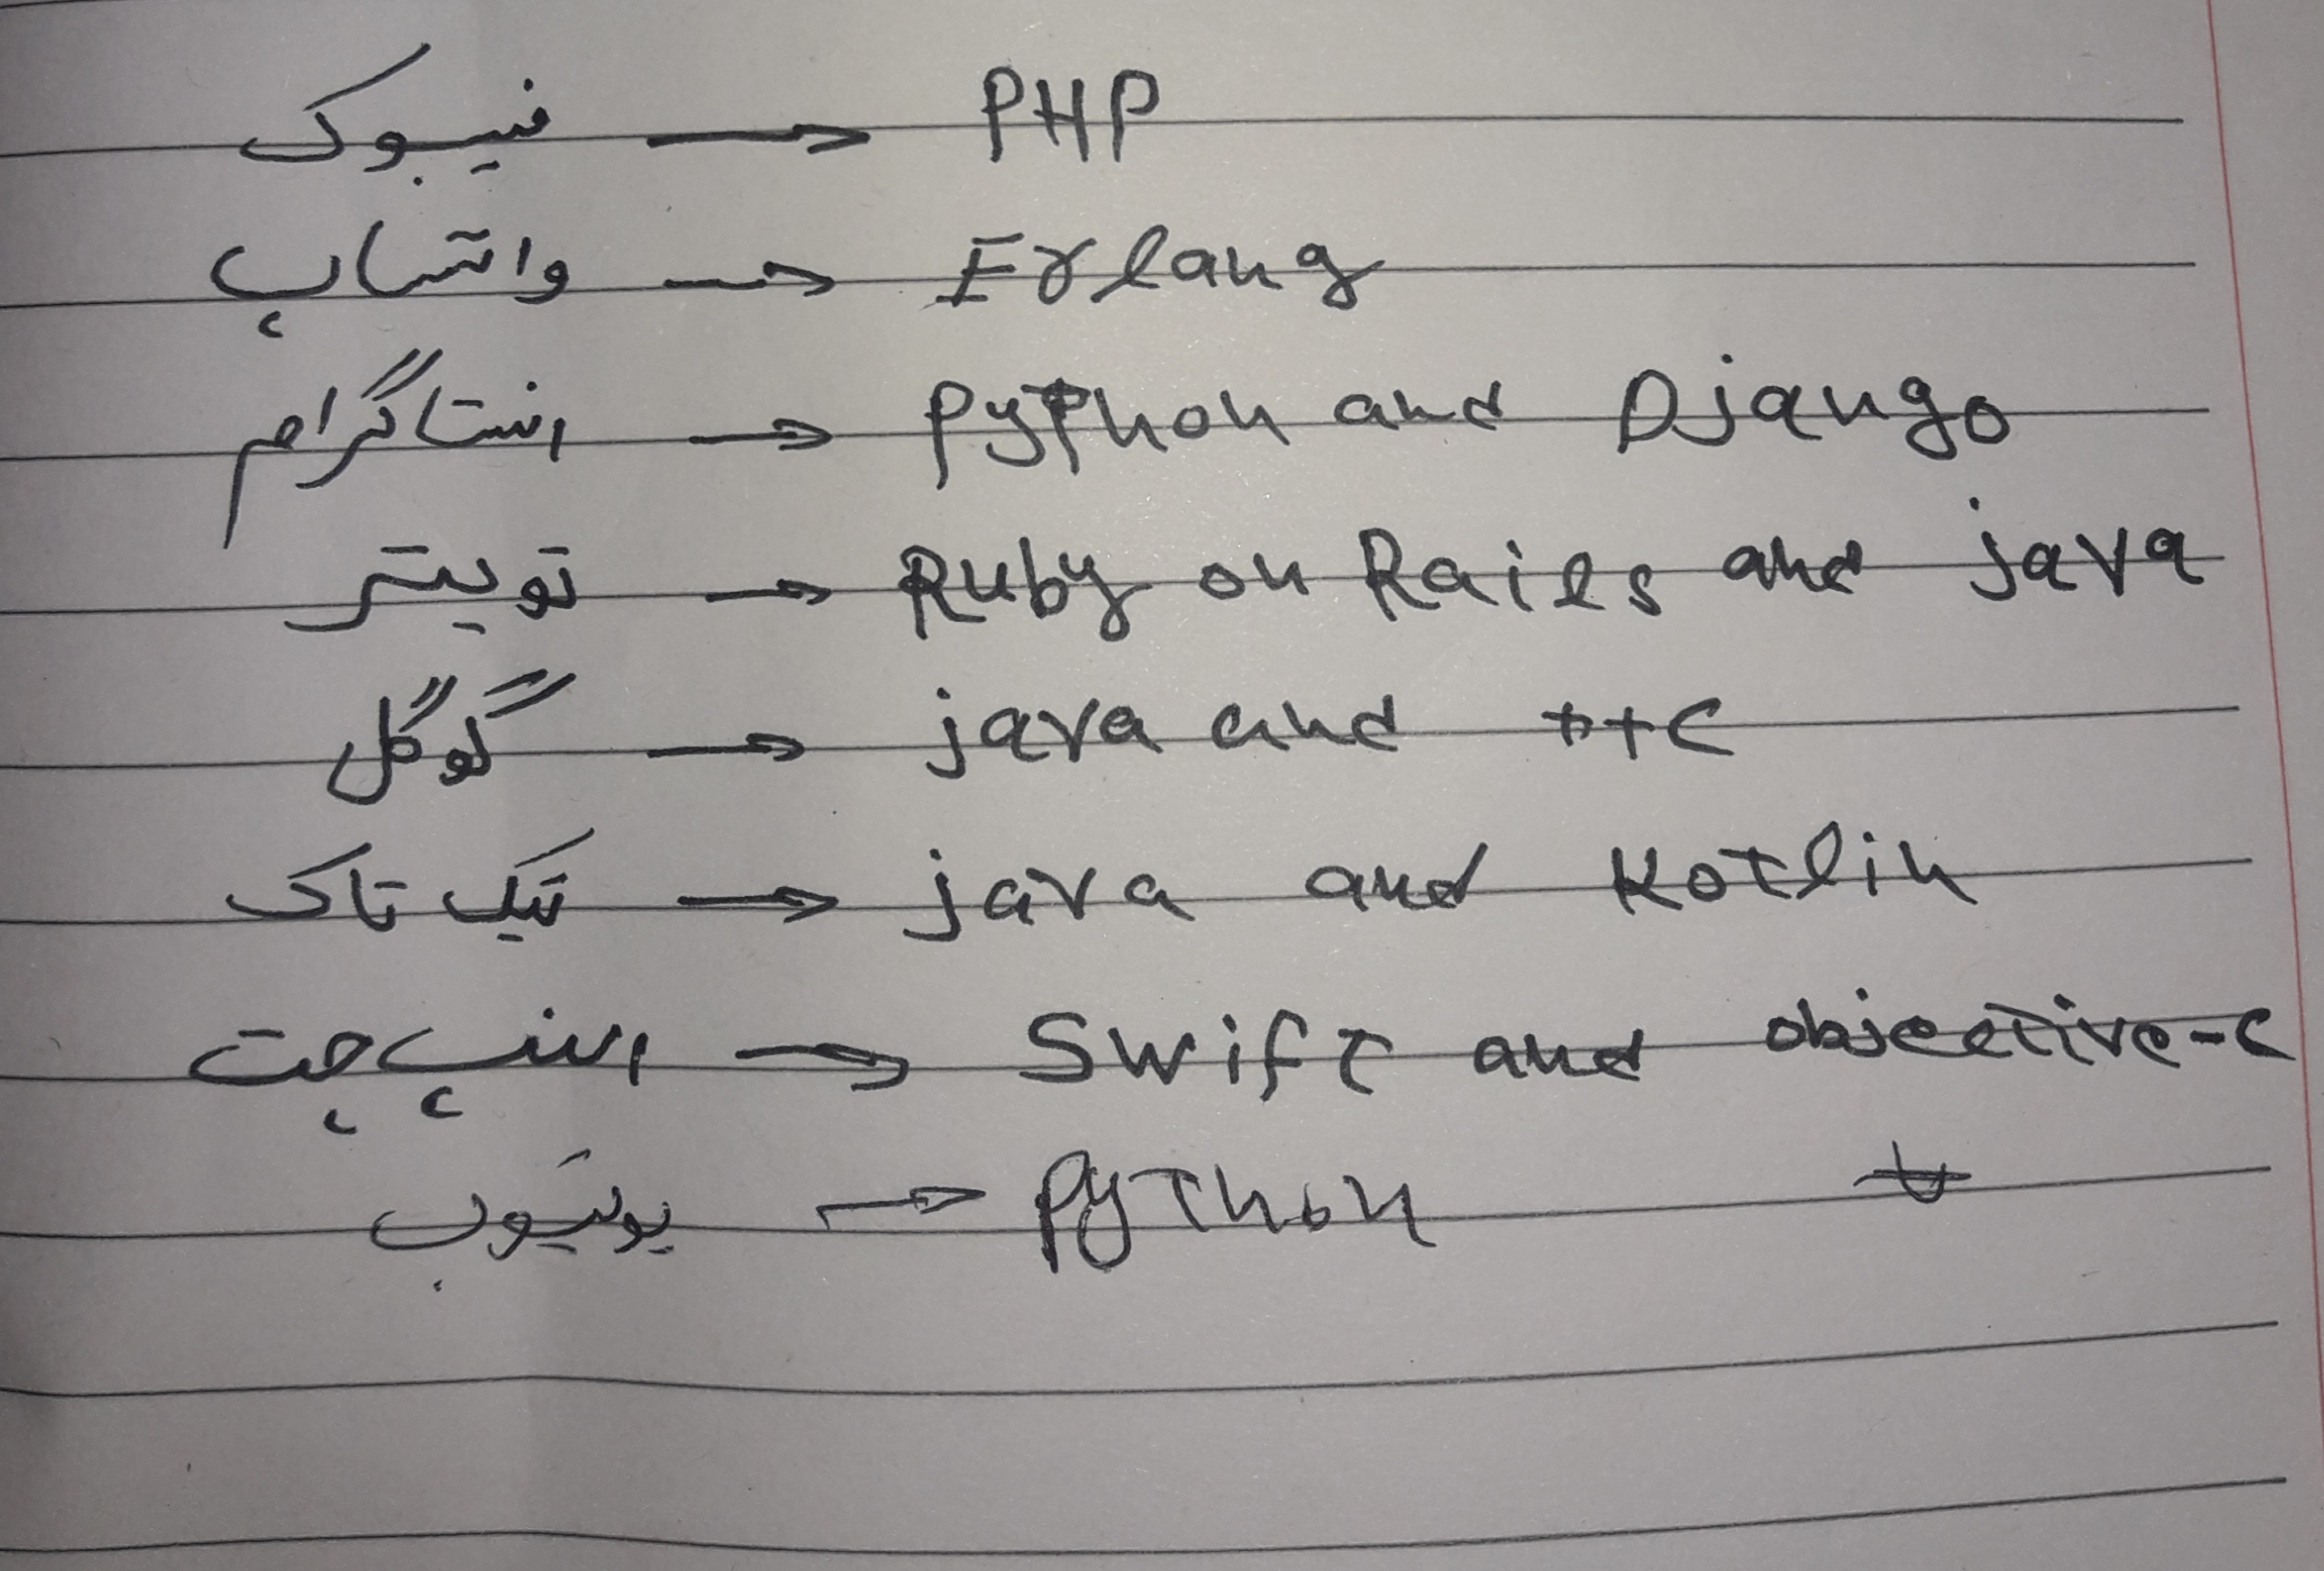 فیسبوک → PHP
واتساپ → Erlang
انستاگرام → Python and Django
توییتر → Ruby on Rails and java
گوگل → java and ++C
تیک تاک → java and Kotlin
اسنپ چت → Swift and objective-c
یوتیوب → Python